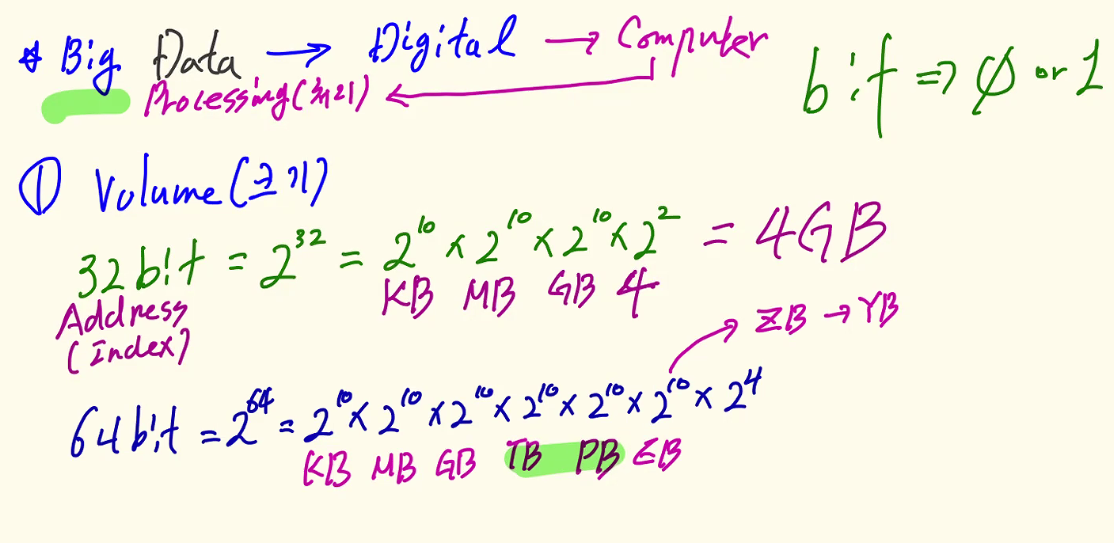 * Big Data → Digital → Computer
Processing(처리)
bit ⇒ 0 or 1
① Volume(크기)
32bit = 2^32 = 2^10 × 2^10 × 2^10 × 2^2 = 4GB
KB MB GB 4
Address
(Index)
ZB → YB
64bit = 2^64 = 2^10 × 2^10 × 2^10 × 2^10 × 2^10 × 2^10 × 2^4
KB MB GB TB PB EB